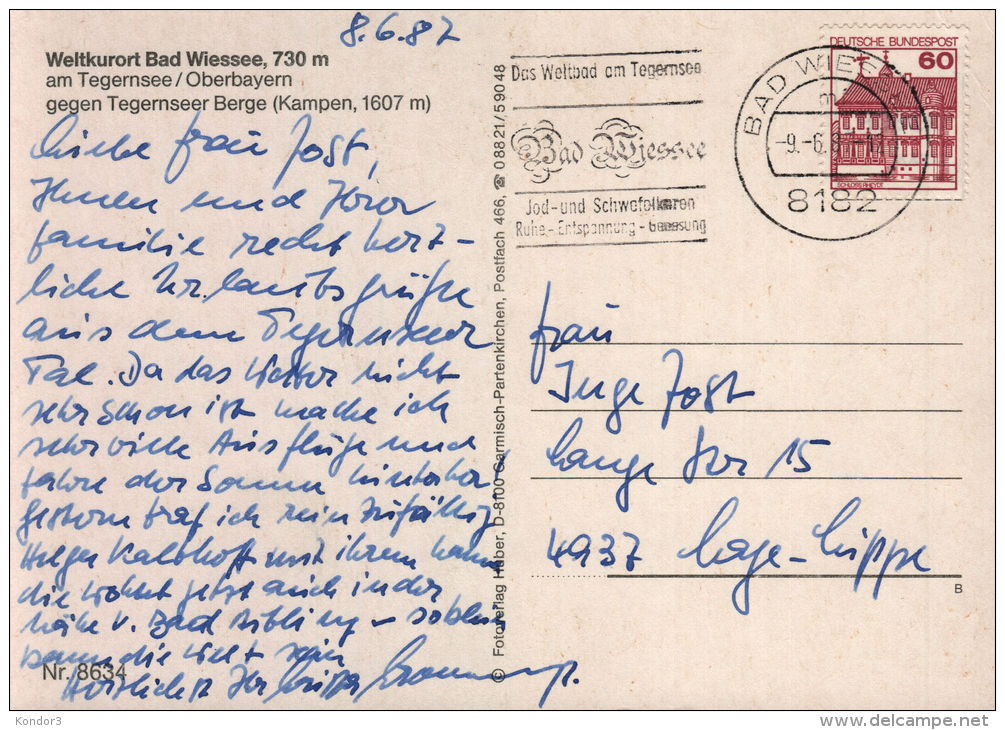 8.6.87
Weltkurort Bad Wiessee, 730 m
am Tegernsee/Oberbayern
gegen Tegernseer Berge (Kampen, 1607 m)
Liebe Frau Jost,
Ihnen und Ihrer
Familie recht herz-
liche Urlaubsgrüße
aus dem Tegernseer
Tal. Da das Wetter nicht
sehr schön ist mache ich
sehr viele Ausflüge und
fahre der Sonne hinterher!
Gestern traf ich rein zufällig
Kalthoff mit ihrem
die wohnt jetzt auch in der
Nähe v. Bad Aibling – so klein
kann die Welt sein
Herzlichst Ihr
Nr. 8634
© Fotoverlag Huber, D-8100 Garmisch-Partenkirchen, Postfach 466, ☎ 08821/59048
Das Weltbad am Tegernsee
Bad Wiessee
Jod- und Schwefelkuren
Ruhe - Entspannung - Genesung
BAD WIESSEE
-9.-6.8
8182
DEUTSCHE BUNDESPOST
60
SCHLOSS RHEYDT
Frau
Inge Jost
Lange Str 15
4937 Lage-Lippe
B
Kondor3